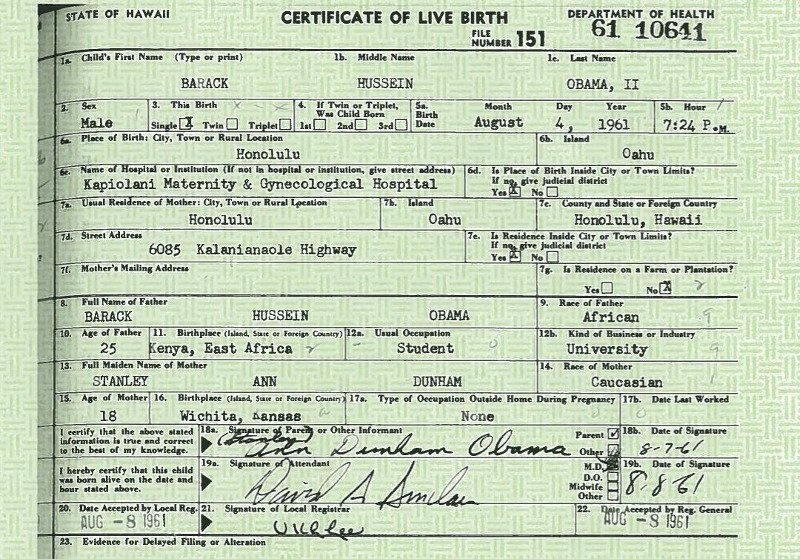 STATE OF HAWAII CERTIFICATE OF LIVE BIRTH DEPARTMENT OF HEALTH
FILE NUMBER 151 61 10641
1a. Child's First Name (Type or print) 1b. Middle Name 1c. Last Name
BARACK HUSSEIN OBAMA, II
2. Sex 3. This Birth 4. If Twin or Triplet, Was Child Born 5a. Birth Date Month Day Year 5b. Hour
Male Single X Twin Triplet 1st 2nd 3rd August 4, 1961 7:24 P.M.
6a. Place of Birth: City, Town or Rural Location 6b. Island
Honolulu Oahu
6c. Name of Hospital or Institution (If not in hospital or institution, give street address) 6d. Is Place of Birth Inside City or Town Limits?
If no, give judicial district
Kapiolani Maternity & Gynecological Hospital Yes X No
7a. Usual Residence of Mother: City, Town or Rural Location 7b. Island 7c. County and State or Foreign Country
Honolulu Oahu Honolulu, Hawaii
7d. Street Address 7e. Is Residence Inside City or Town Limits?
If no, give judicial district
6085 Kalanianaole Highway Yes X No
7f. Mother's Mailing Address 7g. Is Residence on a Farm or Plantation?
Yes No X 2
8. Full Name of Father 9. Race of Father
BARACK HUSSEIN OBAMA African 9
10. Age of Father 11. Birthplace (Island, State or Foreign Country) 12a. Usual Occupation 12b. Kind of Business or Industry
25 Kenya, East Africa Student 0 University 9
13. Full Maiden Name of Mother 14. Race of Mother
STANLEY ANN DUNHAM Caucasian 1
15. Age of Mother 16. Birthplace (Island, State or Foreign Country) 17a. Type of Occupation Outside Home During Pregnancy 17b. Date Last Worked
18 Wichita, Kansas None
I certify that the above stated information is true and correct to the best of my knowledge. 18a. Signature of Parent or Other Informant Parent Other 18b. Date of Signature
(Stanley) Ann Dunham Obama 8-7-61
I hereby certify that this child was born alive on the date and hour stated above. 19a. Signature of Attendant M.D. D.O. Midwife Other 19b. Date of Signature
David A Sinclair 8-8-61
20. Date Accepted by Local Reg. 21. Signature of Local Registrar 22. Date Accepted by Reg. General
AUG -8 1961 U K L Lee AUG -8 1961
23. Evidence for Delayed Filing or Alteration